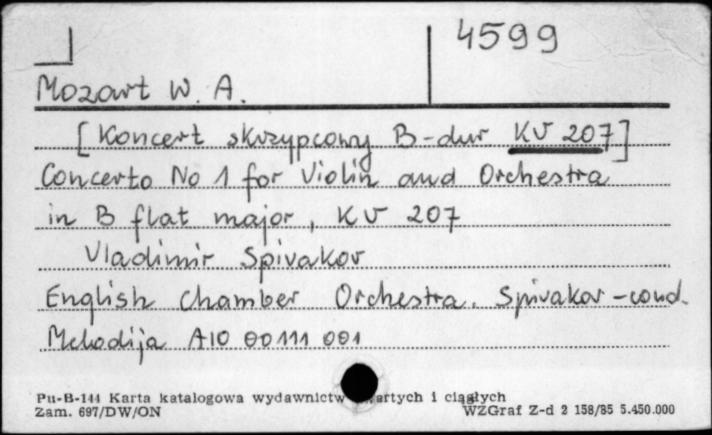 4599
Mozart W. A.
[Koncert skrzypcowy B-dur KV 207]
Concerto No 1 for Violin and Orchestra
in B flat major, KV 207
Vladimir Spivakov
English Chamber Orchestra. Spivakov - cond.
Melodija A10 00111 001
Pu-B-144 Karta katalogowa wydawnictw i ciągłych
Zam. 697/DW/ON WZGraf Z-d 2 158/85 5.450.000